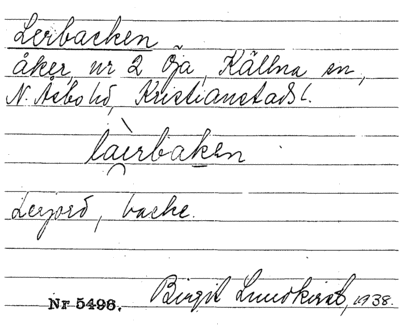 Lerbacken
åker, nr 2 Öja, Källna sn,
N. Åsbo hd, Kristianstads l.
làe̯rbaken
Lerjord, backe.
Nr 5496. Birgit Lundkvist, 1938.